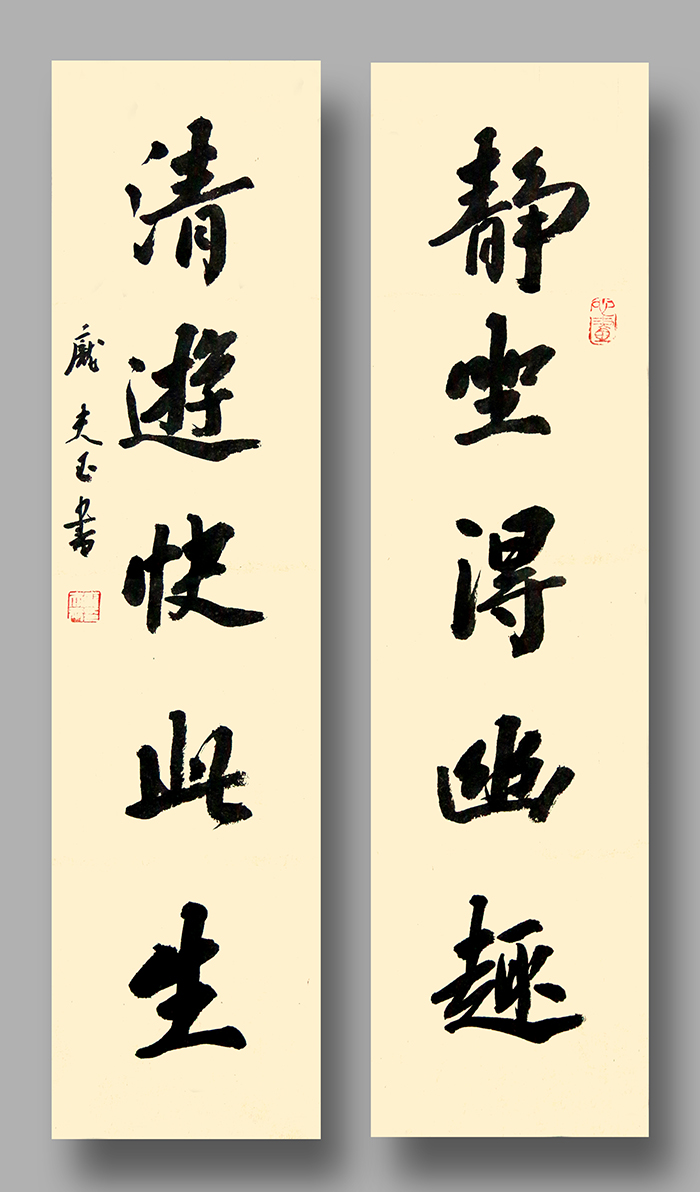 静坐得幽趣
清遊快此生
庞夫玉书